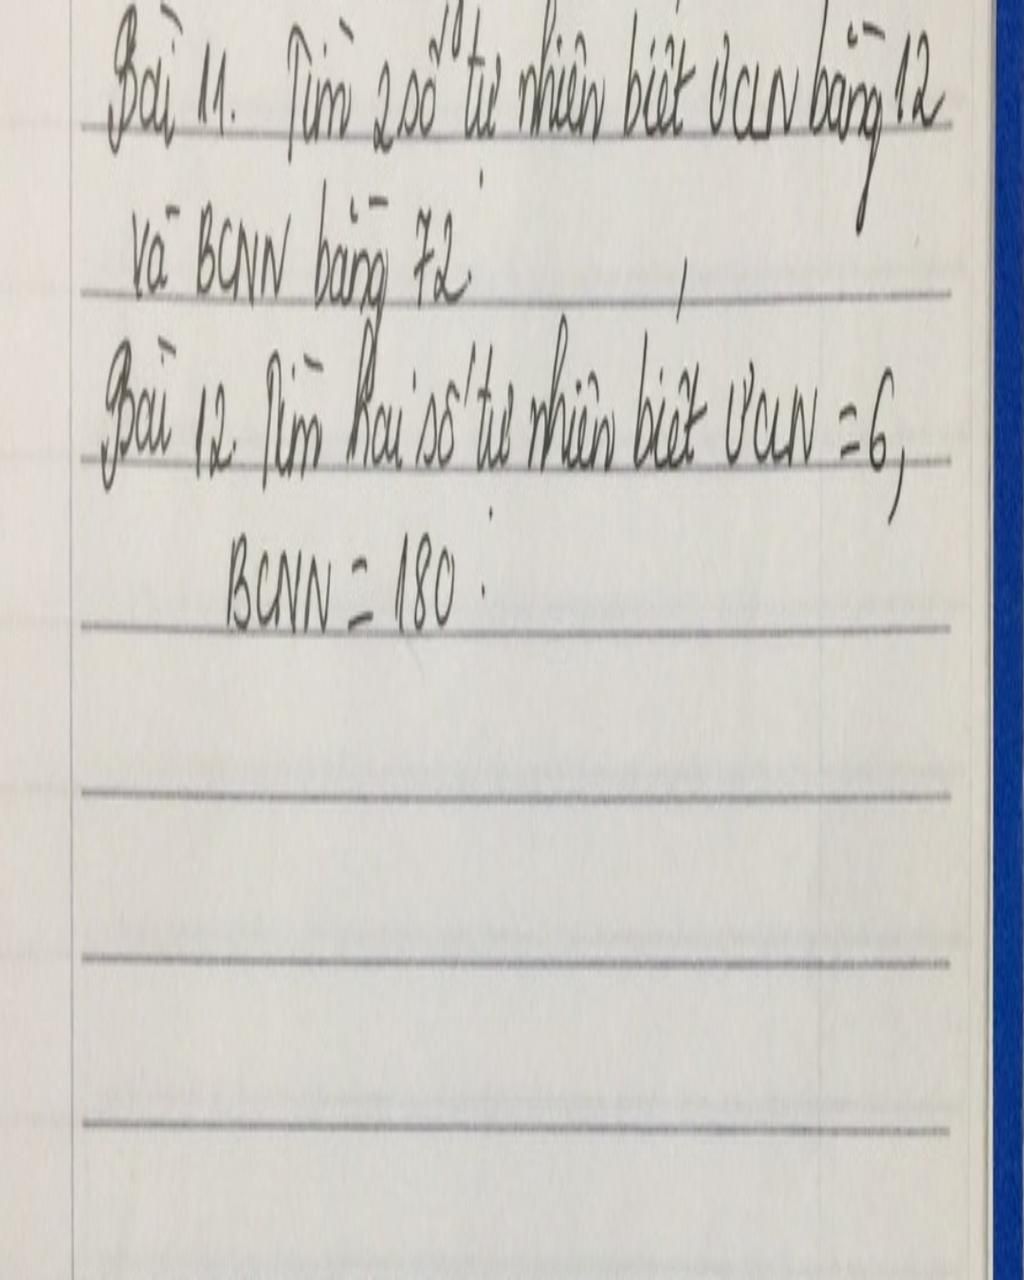 Bài 11. Tìm 2 số tự nhiên biết ƯCLN bằng 12
và BCNN bằng 72
Bài 12. Tìm hai số tự nhiên biết ƯCLN = 6,
BCNN = 180.